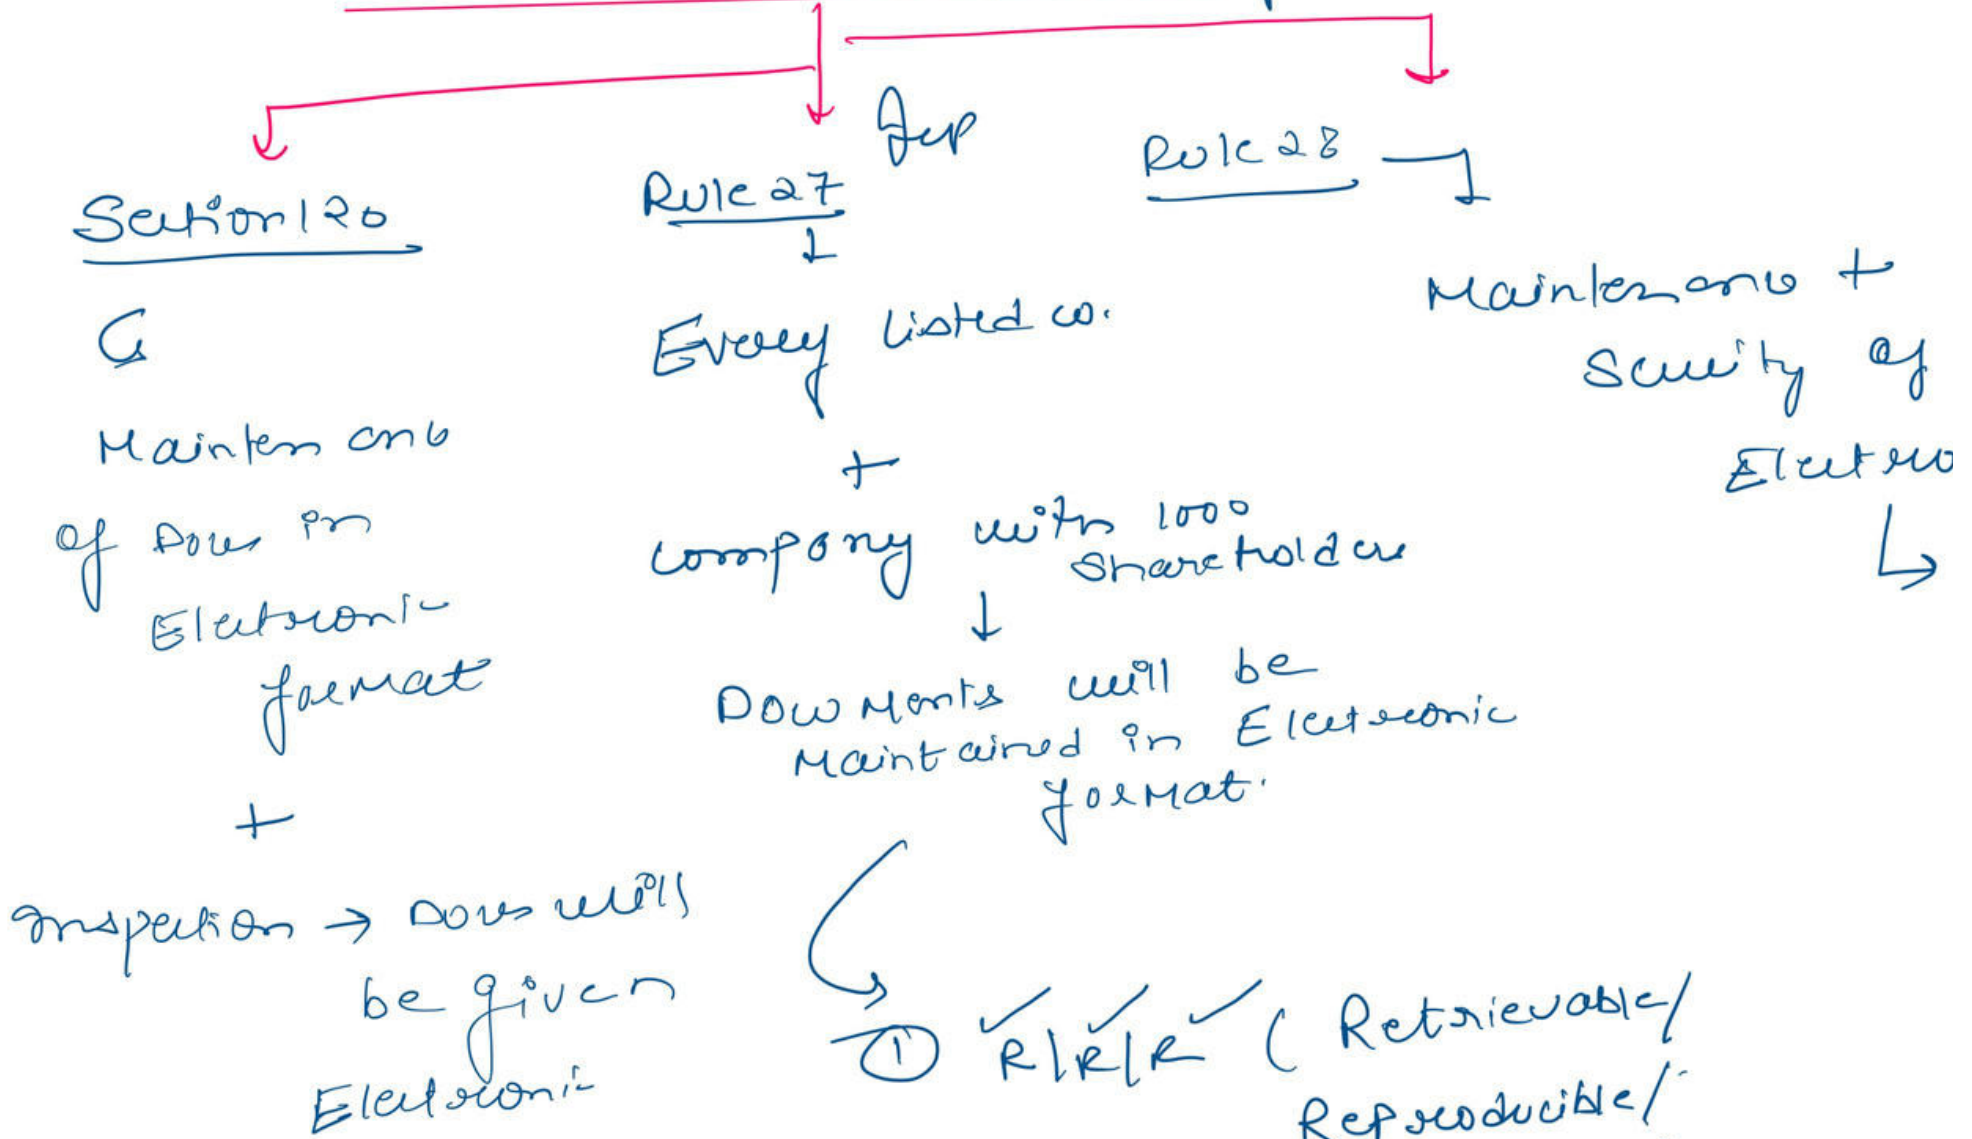 Section 120
Maintenance
of Docs in
Electronic
format
+
Inspection → Docs will
be given
Electronic
Imp
Rule 27
Every listed co.
+
company with 1000
Shareholders
↓
Documents will be
Maintained in Electronic
format.
① R/R/R ( Retrievable/
Reproducible/
Rule 28
Maintenance +
Security of
Electro